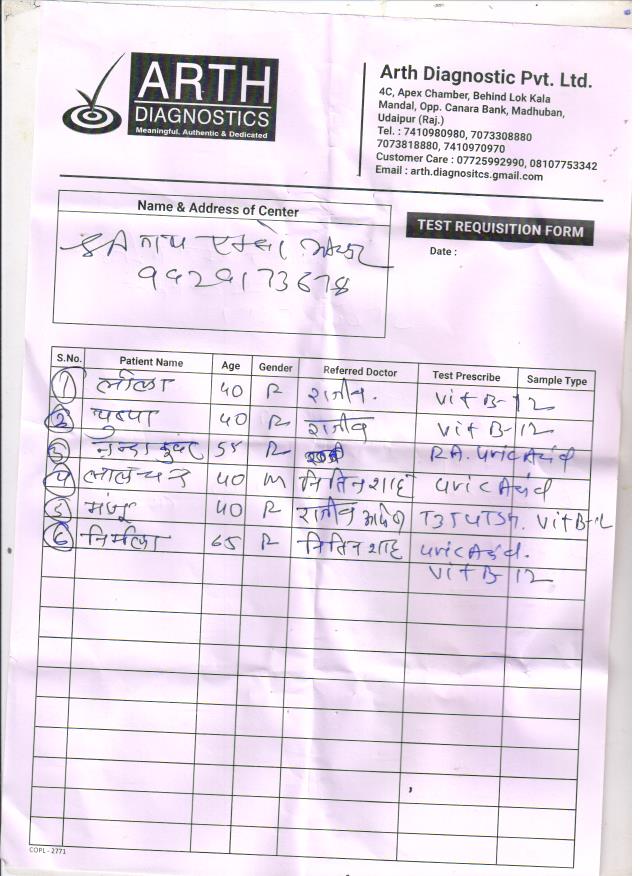 ARTH
DIAGNOSTICS
Meaningful, Authentic & Dedicated
Arth Diagnostic Pvt. Ltd.
4C, Apex Chamber, Behind Lok Kala
Mandal, Opp. Canara Bank, Madhuban,
Udaipur (Raj.)
Tel. : 7410980980, 7073308880
7073818880, 7410970970
Customer Care : 07725992990, 08107753342
Email : arth.diagnositcs.gmail.com
Name & Address of Center
9929173678
TEST REQUISITION FORM
Date :
S.No. Patient Name Age Gender Referred Doctor Test Prescribe Sample Type
1 लीला 40 F राजीव. Vit B-12
2 पुष्पा 40 F राजीव Vit B-12
3 55 F RA. Uric Acid
4 लालचन्द 40 M नितिन शाह Uric Acid
5 मंजू 40 F राजीव T3T4TSH. Vit B-12
6 निर्मला 65 F नितिन शाह Uric Acid.
Vit B-12
COPL - 2771